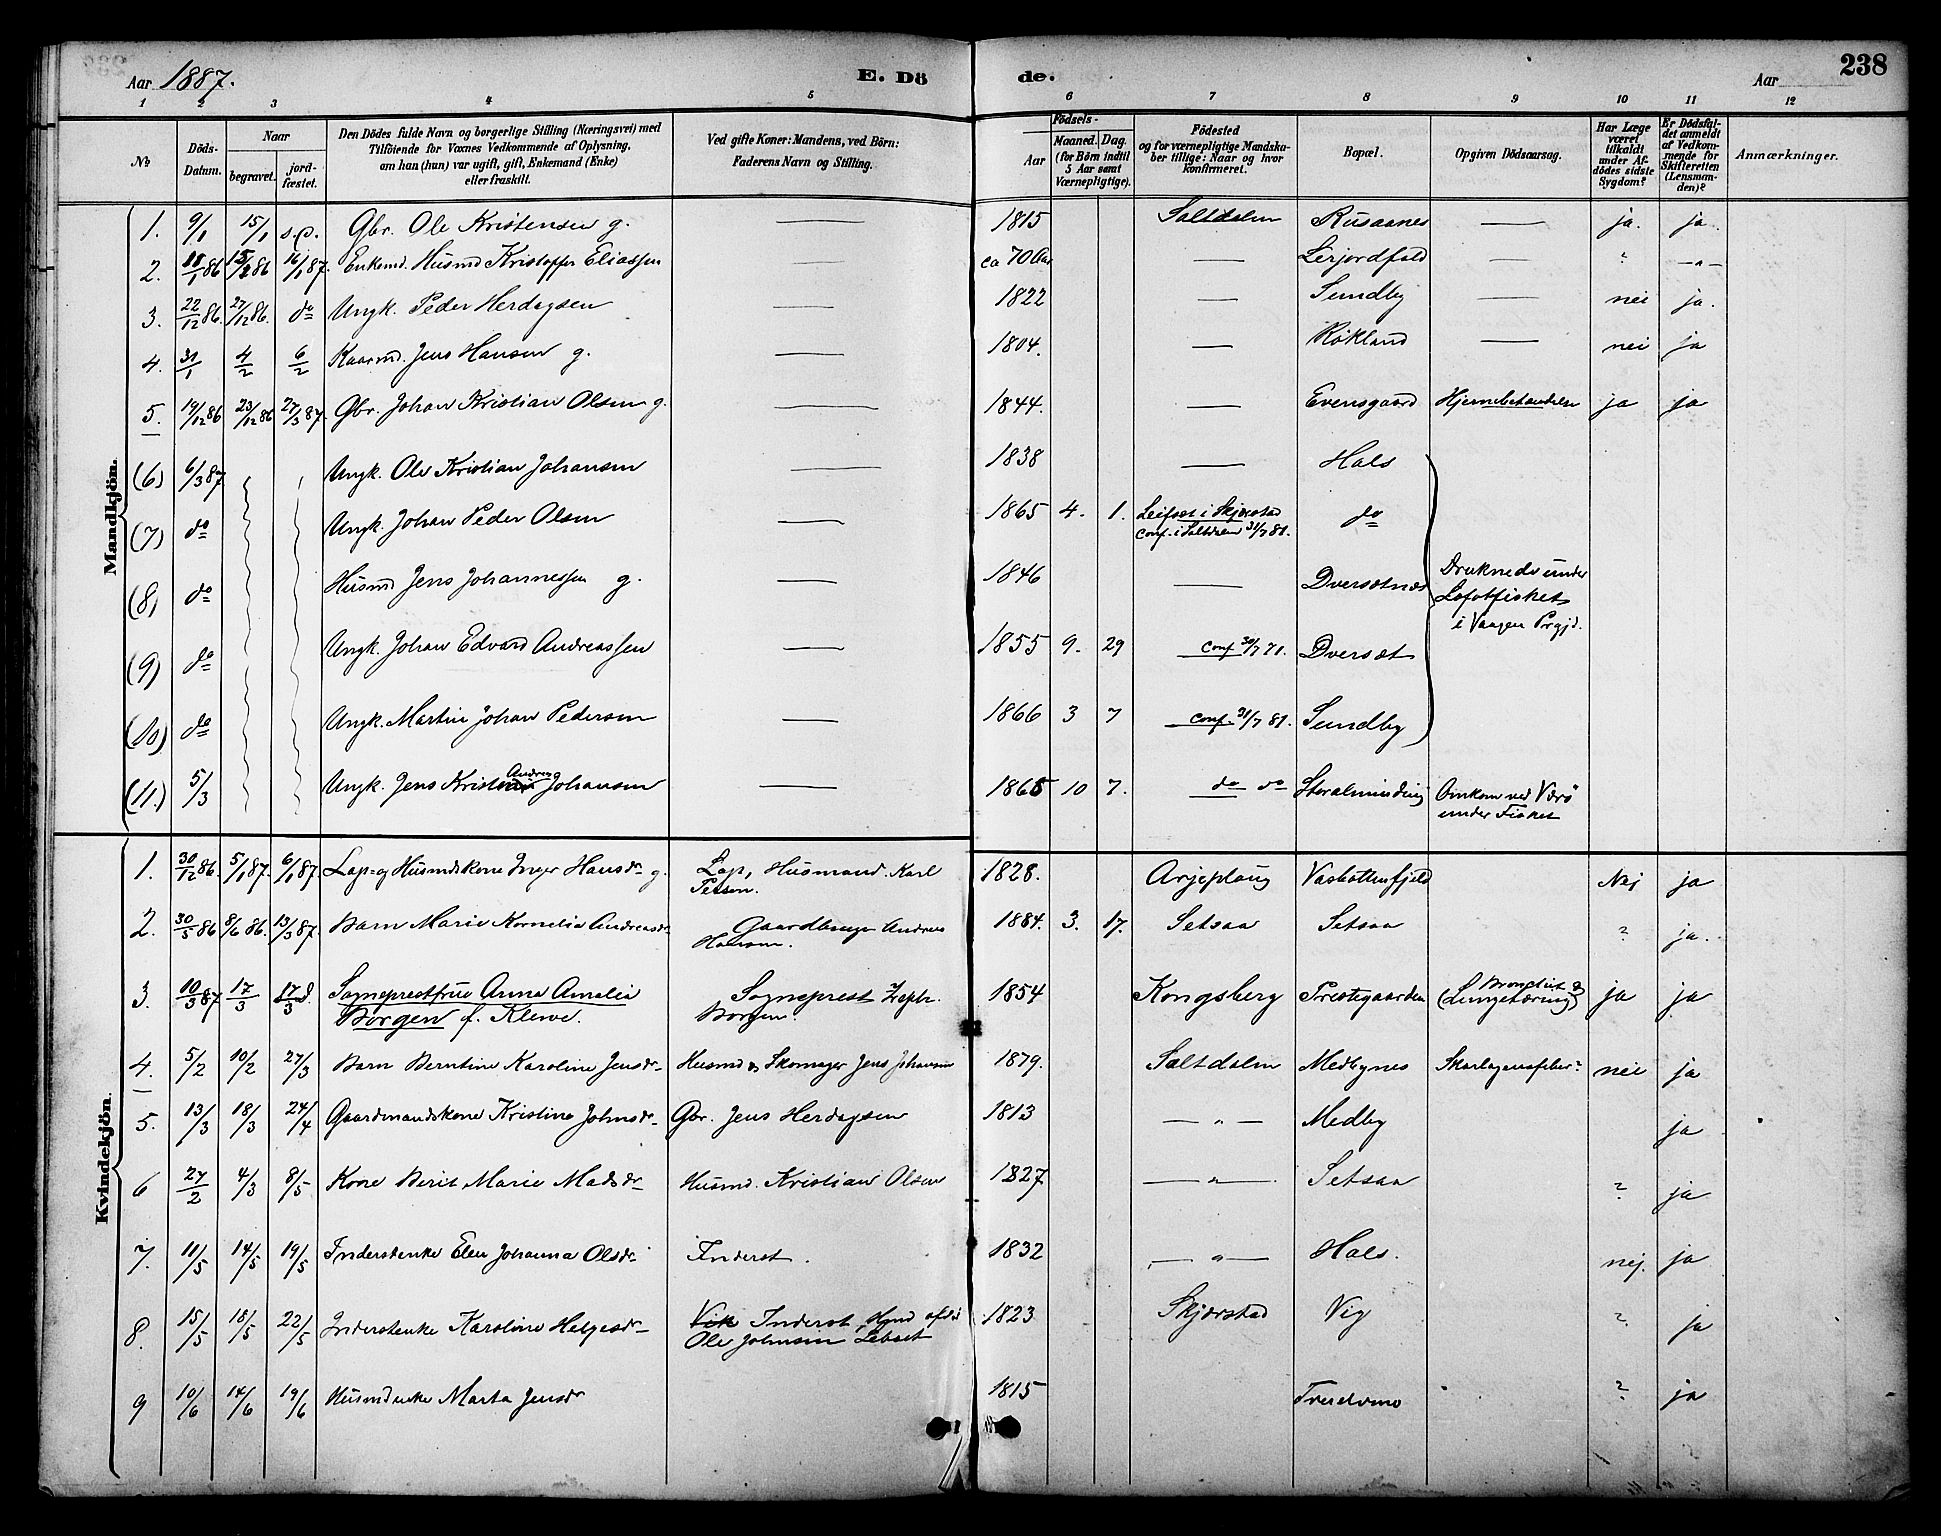 Aar 1887.
E. Dö
de.
Aar
238
1 2 3 4 5 6 7 8 9 10 11 12
No
Döds-Datum.
Naar
begravet.
jord-fæstet.
Den Dödes fulde Navn og borgerlige Stilling (Næringsvei) med
Tilföiende for Voxnes Vedkommende af Oplysning,
om han (hun) var ugift, gift, Enkemand (Enke)
eller fraskilt.
Ved gifte Koner: Mandens, ved Börn:
Faderens Navn og Stilling.
Födsels-
Aar
Maaned. Dag.
(for Börn indtil
5 Aar samt
Værnepligtige).
Födested
og for værnepligtige Mandska-
ber tillige: Naar og hvor
konfirmeret.
Bopæl.
Opgiven Dödsaarsag.
Har Læge
været
tilkaldt
under Af-
dödes sidste
Sygdom?
Er Dödsfal-
det anmeldt
af Vedkom-
mende for
Skifteretten
(Lensman-
den)?
Anmærkninger.
Mandkjön.
1. 9/1 15/1 s.D. Gbr. Ole Kristensen g. — 1815 Saltdalen Rusaanes — ja. ja.
2. 11/1 86 15/2 86 16/1 87. Enkemd. Husmd Kristoffer Eliassen ca 70 Aar — Lerjordfald — ? — „ —
3. 22/12 86. 27/12 86. do Ungk. Peder Herdagsen — 1822 — Sundby — nei ja.
4. 31/1 4/2 6/2 Kaarmd. Jens Hansen g. — 1804. — Rökland — nei ja
5. 19/12 86 23/12 86 27/3 87. Gbr. Johan Kristian Olsen g. — 1844. — Evensgaard Hjernebetændelse ja ja
(6) 6/3 87 Ungk. Ole Kristian Johansen — 1838 — Hals
(7) do Ungk. Johan Peder Olsen — 1865 4. 1. Leifset i Skjerstad
conf. i Saltdalen 31/7 81. do
(8) do Husmd Jens Johannessen g. — 1846 — Dversetnes Druknede under
Lofotfisket
i Vaagen Prgjd.
(9) do Ungk. Johan Edvard Andreassen — 1855 9. 29 conf 30/7 71. Dverset
(10) do Ungk. Martin Johan Pedersen — 1866 3 7 conf. 31/7 81. Sundby
(11.) 5/3 Ungk. Jens Kristian Andreas Johansen — 1865 10 7. do do Storalminding Omkom ved Værö
under Fisket
Kvindekjön.
1. 30/12 86. 5/1 87. 6/1 87. Lap- og Husmdskone Inger Hansdr g. Lap, Husmand. Karl
Petsen. 1828. Arjeploug Vasbottenfjeld Nej ja
2. 30/5 86 8/6 86. 13/3 87. Barn Marie Kornelia Andreasdr Gaardbruger Andreas
Hansen. 1884. 3. 17. Setsaa Setsaa ? ja.
3. 10/3 87 17/3 17/3 Sogneprestfrue Anna Amalia
Borgen f. Klewe. Sogneprest Zeph.
Borgen. 1854 Kongsberg Prestegaarden Bronchit &
(Lungetæring) ja ja
4. 5/2 10/2 27/3 Barn Berntine Karoline Jensdr Husmd og Skomager Jens Johansen 1879. Saltdalen Medbynes Skarlagensfeber? nei ja
5. 13/3 18/3 24/4 Gaardmandskone Kristina Johnsdr Gbr. Jens Herdagsen 1813 — „ — Medby ja
6 27/2 4/3 8/5 Kone Berit Marie Madsdr Husmd. Kristian Olsen 1827 — „ — Setsaa ? ja
7. 11/5 14/5 19/5 Inderstenke Elen Johanna Olsdr Inderst. 1832 — „ — Hals. nej. ja
8. 15/5 18/5 22/5 Inderstenke Karoline Helgesdr Vik Inderst
Ole Johnsen 1823 Skjerstad Vig ? ja
9 10/6 14/6 19/6 Husmdenke Marta Jensdr 1815 Trædvmo ? ja